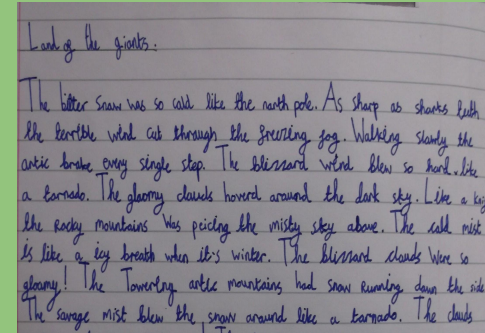 Land of the giants.
The bitter snow was so cold like the north pole. As sharp as sharks teeth
the terrible wind cut through the freezing fog. Walking slowly the
artic brake every single step. The blizzard wind blew so hard. like
a tornado. The gloomy clouds hoverd around the dark sky. Like a
the Rocky mountains was peicing the misty sky above. The cold mist
is like a icy breath when it's winter. The blizzard clouds were so
gloamy! The Towering artic mountains had snow running down the side
The savage mist blew the snow around like a tornado. The clouds